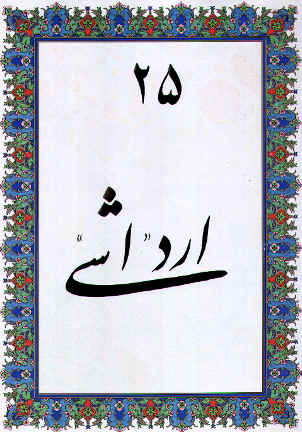 ۲۵
ارد «اشی»